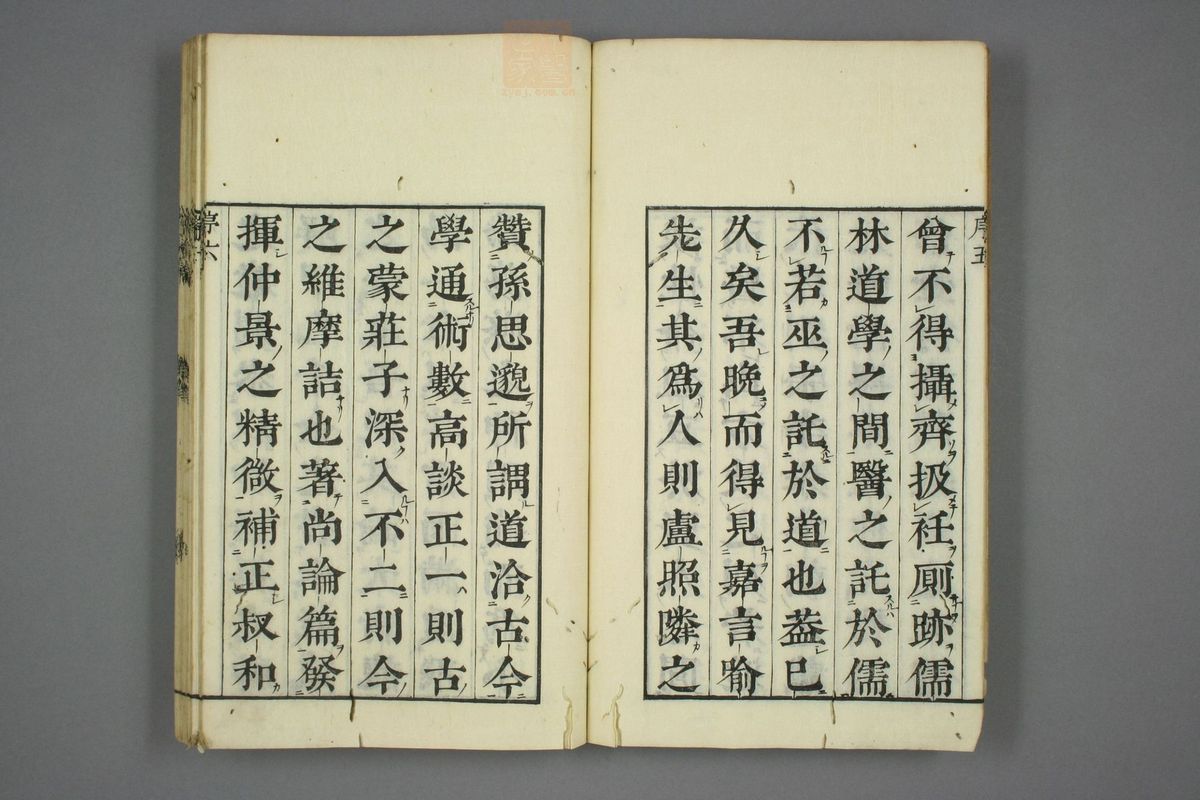 序五
曾不得攝齊扱衽厠跡儒
林道學之間醫之託於儒
不若巫之託於道也葢已
久矣吾晚而得見嘉言喻
先生其爲人則盧照隣之
贊孫思邈所謂道洽古今
學通術數高談正一則古
之蒙莊子深入不二則今
之維摩詰也著尚論篇發
揮仲景之精微補正叔和
序六